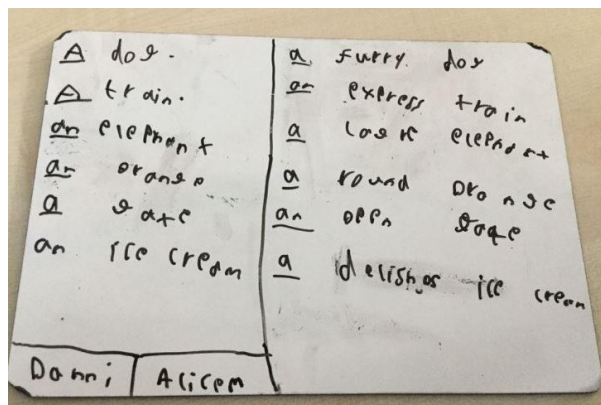 A dog.
A train.
an elephant
an orange
a gate
an ice cream
a furry dog
an express train
a large elephant
a round orange
an open gate
a delishos ice cream
Danni